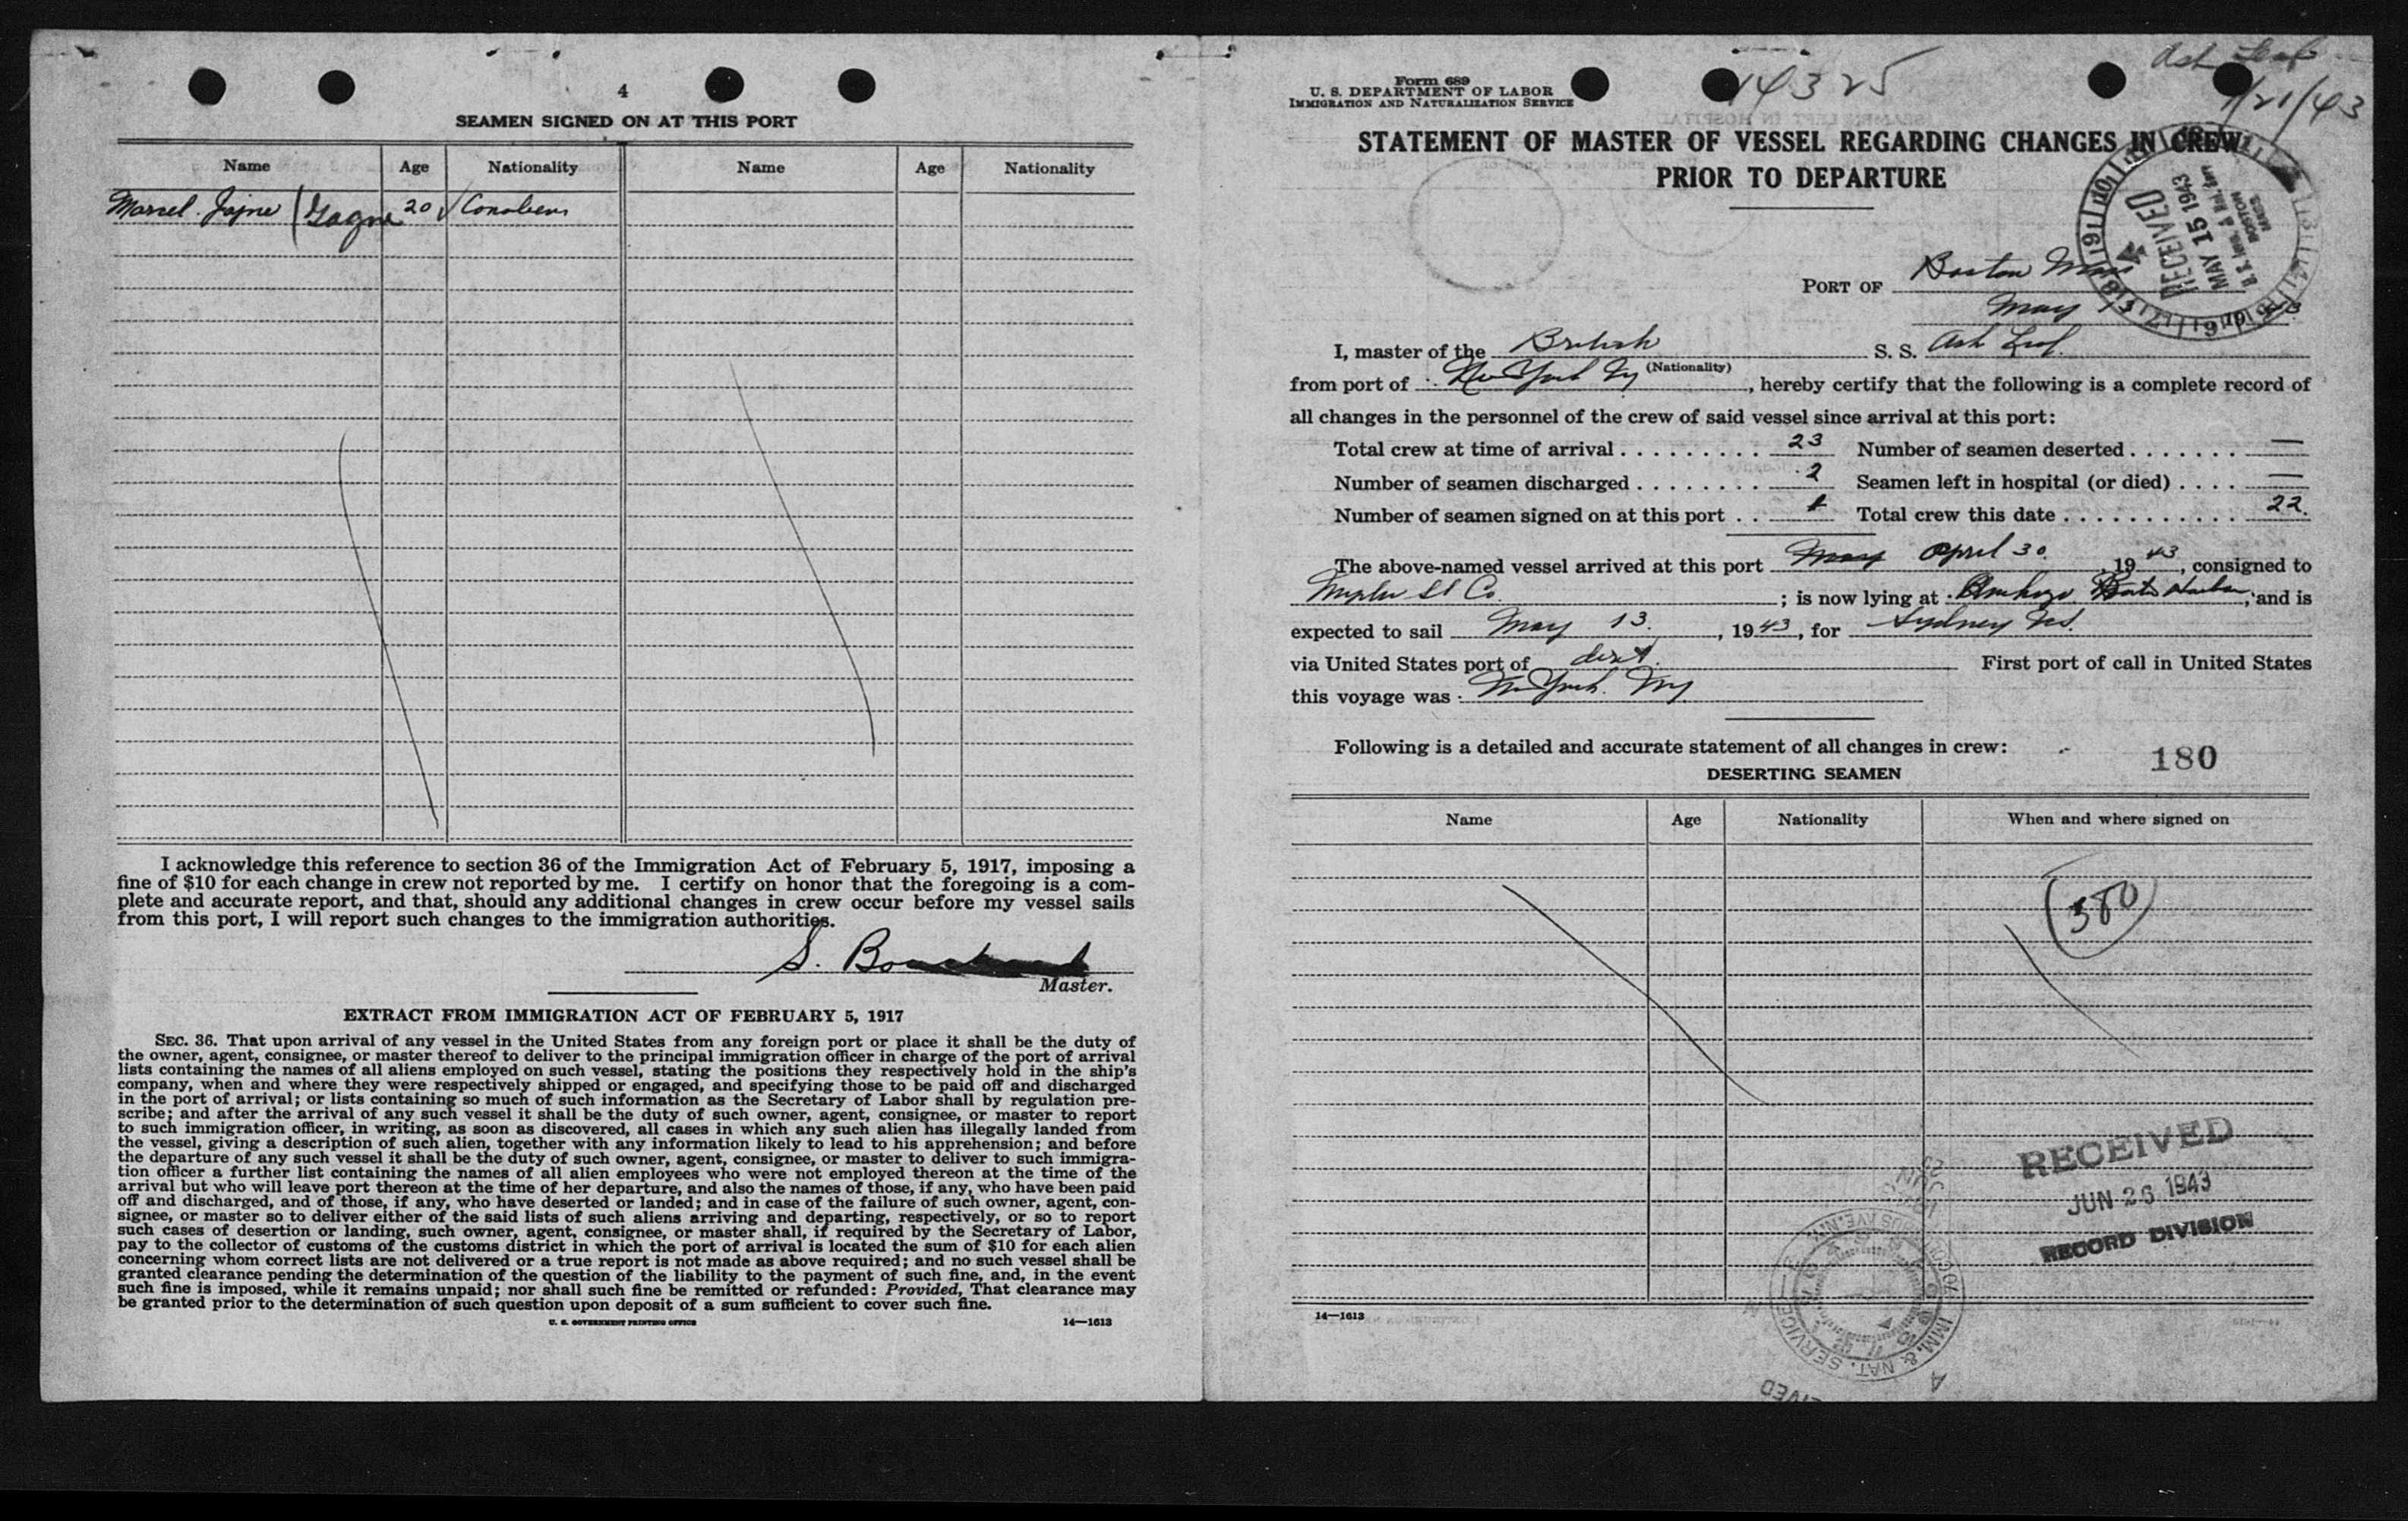 4
SEAMEN SIGNED ON AT THIS PORT
Name Age Nationality Name Age Nationality
Marcel. (Gagne 20 ✓ Canadian
I acknowledge this reference to section 36 of the Immigration Act of February 5, 1917, imposing a
fine of $10 for each change in crew not reported by me. I certify on honor that the foregoing is a com-
plete and accurate report, and that, should any additional changes in crew occur before my vessel sails
from this port, I will report such changes to the immigration authorities.
S.
Master.
EXTRACT FROM IMMIGRATION ACT OF FEBRUARY 5, 1917
SEC. 36. That upon arrival of any vessel in the United States from any foreign port or place it shall be the duty of
the owner, agent, consignee, or master thereof to deliver to the principal immigration officer in charge of the port of arrival
lists containing the names of all aliens employed on such vessel, stating the positions they respectively hold in the ship's
company, when and where they were respectively shipped or engaged, and specifying those to be paid off and discharged
in the port of arrival; or lists containing so much of such information as the Secretary of Labor shall by regulation pre-
scribe; and after the arrival of any such vessel it shall be the duty of such owner, agent, consignee, or master to report
to such immigration officer, in writing, as soon as discovered, all cases in which any such alien has illegally landed from
the vessel, giving a description of such alien, together with any information likely to lead to his apprehension; and before
the departure of any such vessel it shall be the duty of such owner, agent, consignee, or master to deliver to such immigra-
tion officer a further list containing the names of all alien employees who were not employed thereon at the time of the
arrival but who will leave port thereon at the time of her departure, and also the names of those, if any, who have been paid
off and discharged, and of those, if any, who have deserted or landed; and in case of the failure of such owner, agent, con-
signee, or master so to deliver either of the said lists of such aliens arriving and departing, respectively, or so to report
such cases of desertion or landing, such owner, agent, consignee, or master shall, if required by the Secretary of Labor,
pay to the collector of customs of the customs district in which the port of arrival is located the sum of $10 for each alien
concerning whom correct lists are not delivered or a true report is not made as above required; and no such vessel shall be
granted clearance pending the determination of the question of the liability to the payment of such fine, and, in the event
such fine is imposed, while it remains unpaid; nor shall such fine be remitted or refunded: Provided, That clearance may
be granted prior to the determination of such question upon deposit of a sum sufficient to cover such fine.
U. S. GOVERNMENT PRINTING OFFICE 14—1613
Form 689
U. S. DEPARTMENT OF LABOR
IMMIGRATION AND NATURALIZATION SERVICE
14325
Ash Leaf
/21/43
STATEMENT OF MASTER OF VESSEL REGARDING CHANGES IN CREW
PRIOR TO DEPARTURE
RECEIVED
MAY 15 1943
BOSTON
MASS.
PORT OF Boston Mass
May 13
I, master of the British S. S. Ash Leaf.
(Nationality)
from port of New York Ny, hereby certify that the following is a complete record of
all changes in the personnel of the crew of said vessel since arrival at this port:
Total crew at time of arrival . . . . . . . . . 23 Number of seamen deserted . . . . . . . —
Number of seamen discharged . . . . . . . . 2 Seamen left in hospital (or died) . . . . —
Number of seamen signed on at this port . . 1 Total crew this date . . . . . . . . . . . . 22.
The above-named vessel arrived at this port May April 30, 1943, consigned to
St Co. ; is now lying at , and is
expected to sail May 13., 1943, for Sydney NS.
via United States port of dirt. First port of call in United States
this voyage was N York. Ny.
Following is a detailed and accurate statement of all changes in crew:
180
DESERTING SEAMEN
Name Age Nationality When and where signed on
(380)
RECEIVED
JUN 26 1943
RECORD DIVISION
IMM. & NAT. SERVICE
14—1613